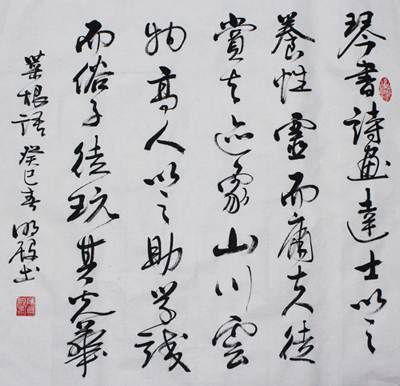 琴書詩畫達士以之
養性靈而庸夫徒
賞其迹象山川雲
物高人以之助学識
而俗子徒玩其光華
菜根語癸巳春